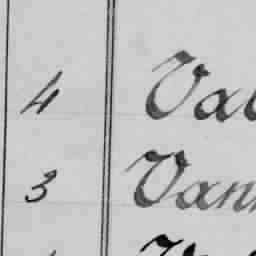 4 Val
3 Van